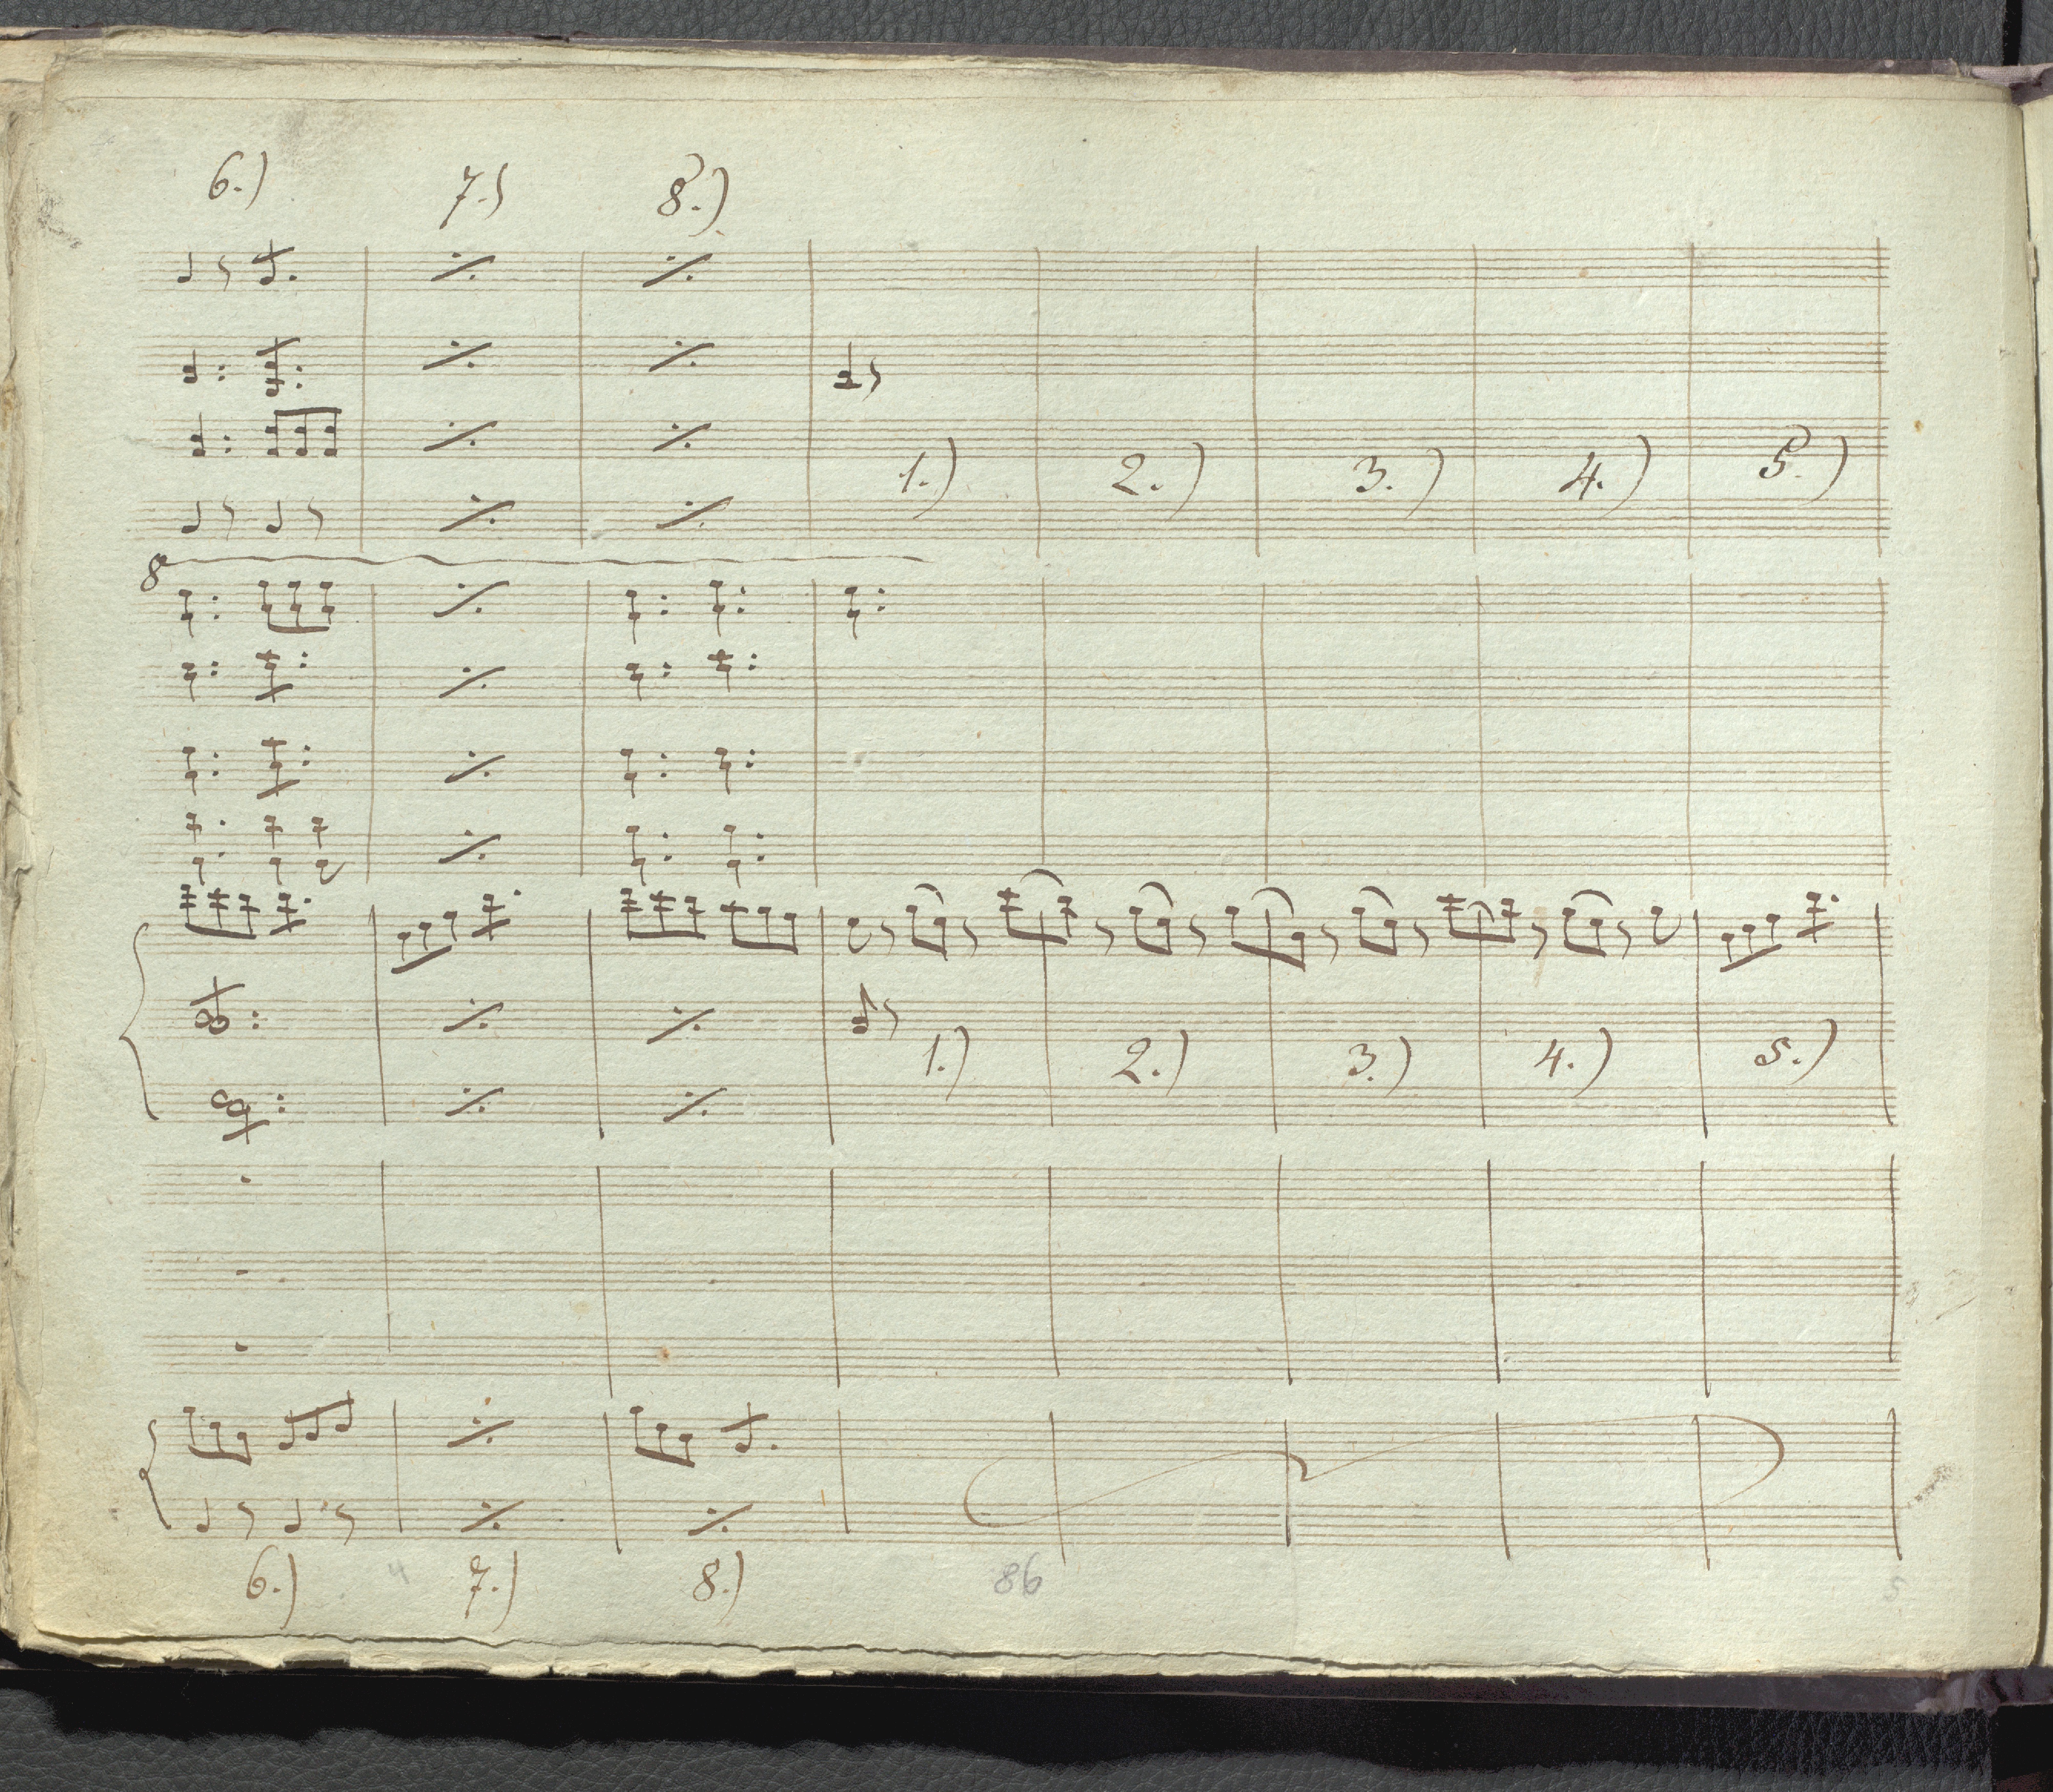 6.) 7.) 8.)
1.) 2.) 3.) 4.) 5.)
8
1.) 2.) 3.) 4.) 5.)
6.) 4 7.) 8.) 86 5